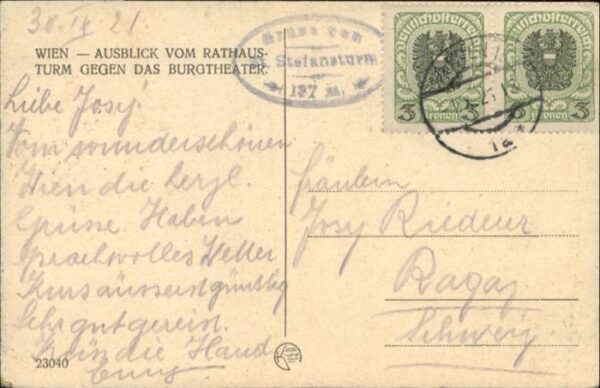 30. IX 21.
WIEN — AUSBLICK VOM RATHAUS-
TURM GEGEN DAS BURGTHEATER.
Gruss vom
St. Stefansturm
137 m.
Deutschösterreich
Deutschösterreich
3 Kronen 3
3 Kronen 3
Liebe Josy!
Vom wunderschönen
Wien die herzl.
Grüsse. Haben
prachtvolles Wetter
Kurs äusserst günstig
Sehr gut gereist.
die Hand
Fräulein
Josy Riedeur
Ragaz
Schweiz
23040